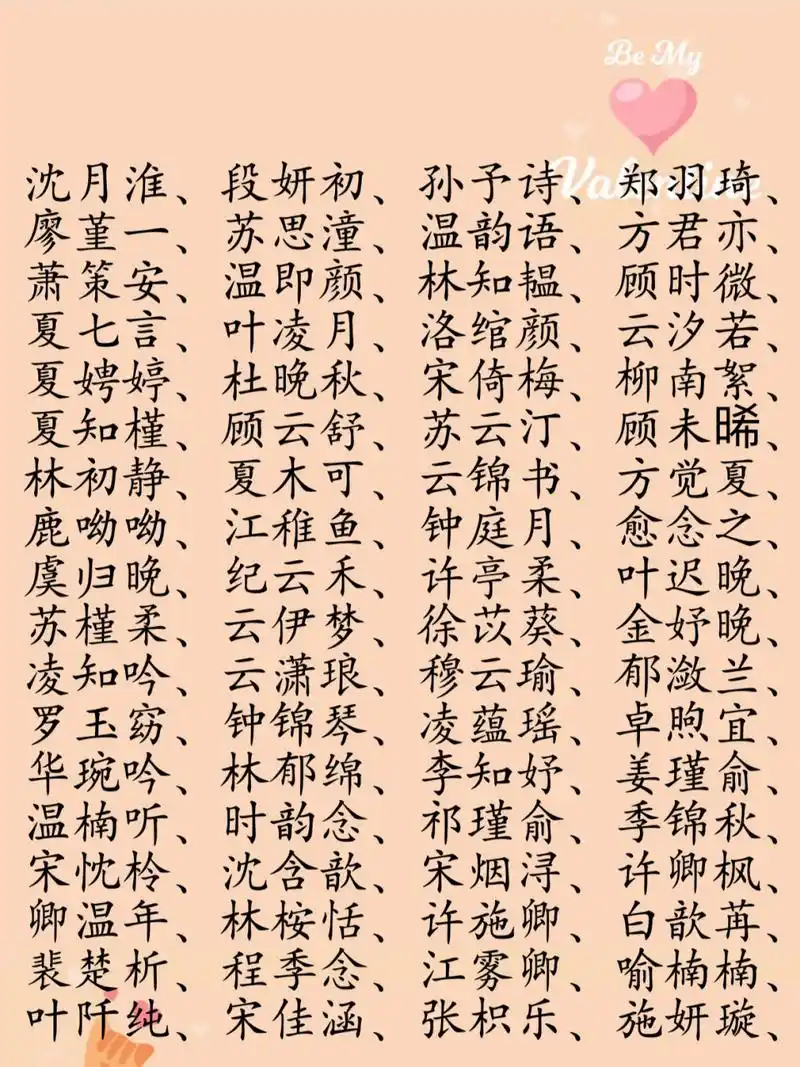 Be My
Valentine
沈月淮、段妍初、孙予诗、郑羽琦、
廖堇一、苏思潼、温韵语、方君亦、
萧策安、温即颜、林知韫、顾时微、
夏七言、叶凌月、洛绾颜、云汐若、
夏娉婷、杜晚秋、宋倚梅、柳南絮、
夏知槿、顾云舒、苏云汀、顾未晞、
林初静、夏木可、云锦书、方觉夏、
鹿呦呦、江稚鱼、钟庭月、愈念之、
虞归晚、纪云禾、许亭柔、叶迟晚、
苏槿柔、云伊梦、徐苡葵、金妤晚、
凌知吟、云潇琅、穆云瑜、郁潋兰、
罗玉窈、钟锦琴、凌蕴瑶、卓煦宜、
华琬吟、林郁绵、李知妤、姜瑾俞、
温楠听、时韵念、祁瑾俞、季锦秋、
宋忱柃、沈含歆、宋烟浔、许卿枫、
卿温年、林桉恬、许施卿、白歆苒、
裴楚析、程季念、江雾卿、喻楠楠、
叶阡纯、宋佳涵、张枳乐、施妍璇、